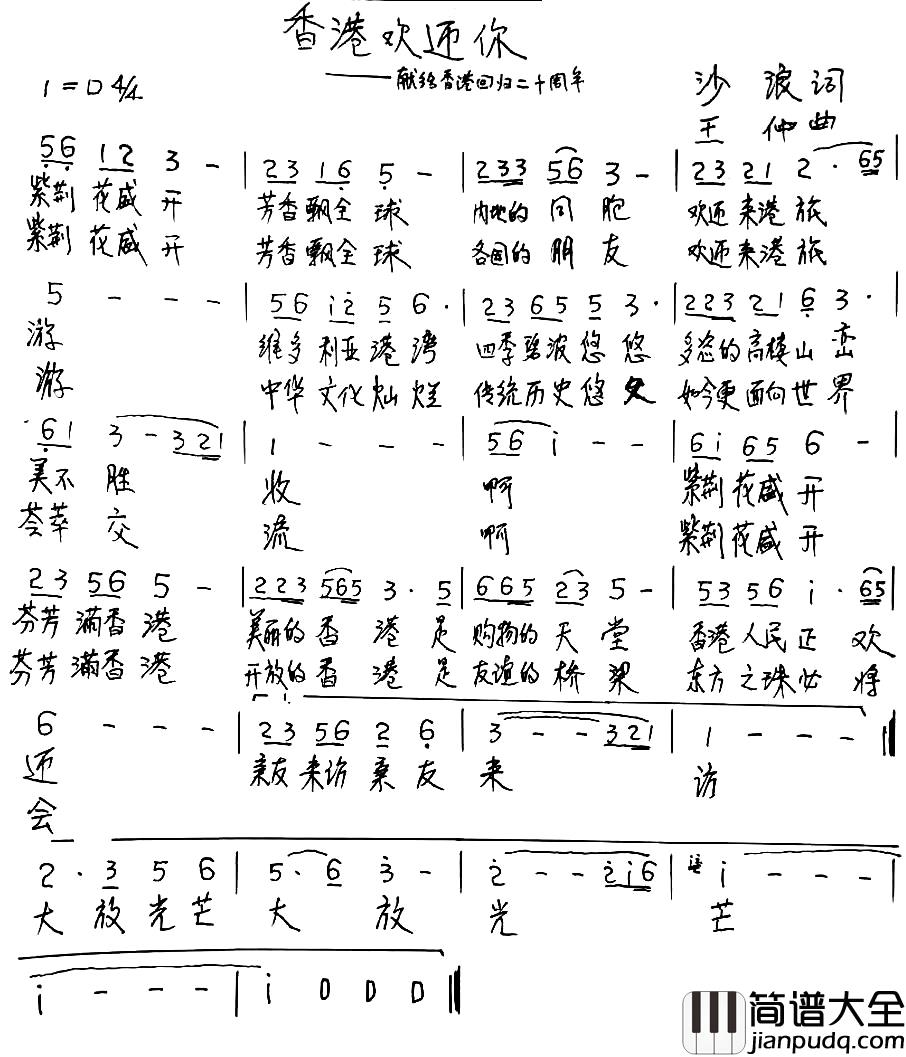 香港欢迎你
——献给香港回归二十周年
1=D 4/4
沙浪词
王仲曲
56 12 3 - | 23 16 5 - | 233 56 3 - | 23 21 2 · 65
紫荆花盛开 芳香飘全球 内地的同胞 欢迎来港旅
紫荆花盛开 芳香飘全球 各国的朋友 欢迎来港旅
5 - - - | 56 i2 5 6 · | 23 65 5 3 · | 223 21 6 3 · |
游 维多利亚港湾 四季碧波悠悠 多姿的高楼山峦
游 中华文化灿烂 传统历史悠久 如今更面向世界
61 3 - 321 | 1 - - - | 56 i - - | 6i 65 6 - |
美不胜 收 啊 紫荆花盛开
荟萃交 流 啊 紫荆花盛开
23 56 5 - | 223 565 3 · 5 | 665 23 5 - | 53 56 i · 65
芬芳满香港 美丽的香港是 购物的天堂 香港人民正欢
芬芳满香港 开放的香港是 友谊的桥梁 东方之珠必将
1.
6 - - - | 23 56 2 6 | 3 - - 321 | 1 - - - ‖
迎 亲友来访亲友 来 访
会
2 · 3 5 6 | 5 · 6 3 - | 2 - - 2i6 | i - - -
大放光芒 大放 光 芒
i - - - | i 0 0 0 ‖
简谱大全
jianpudq.com